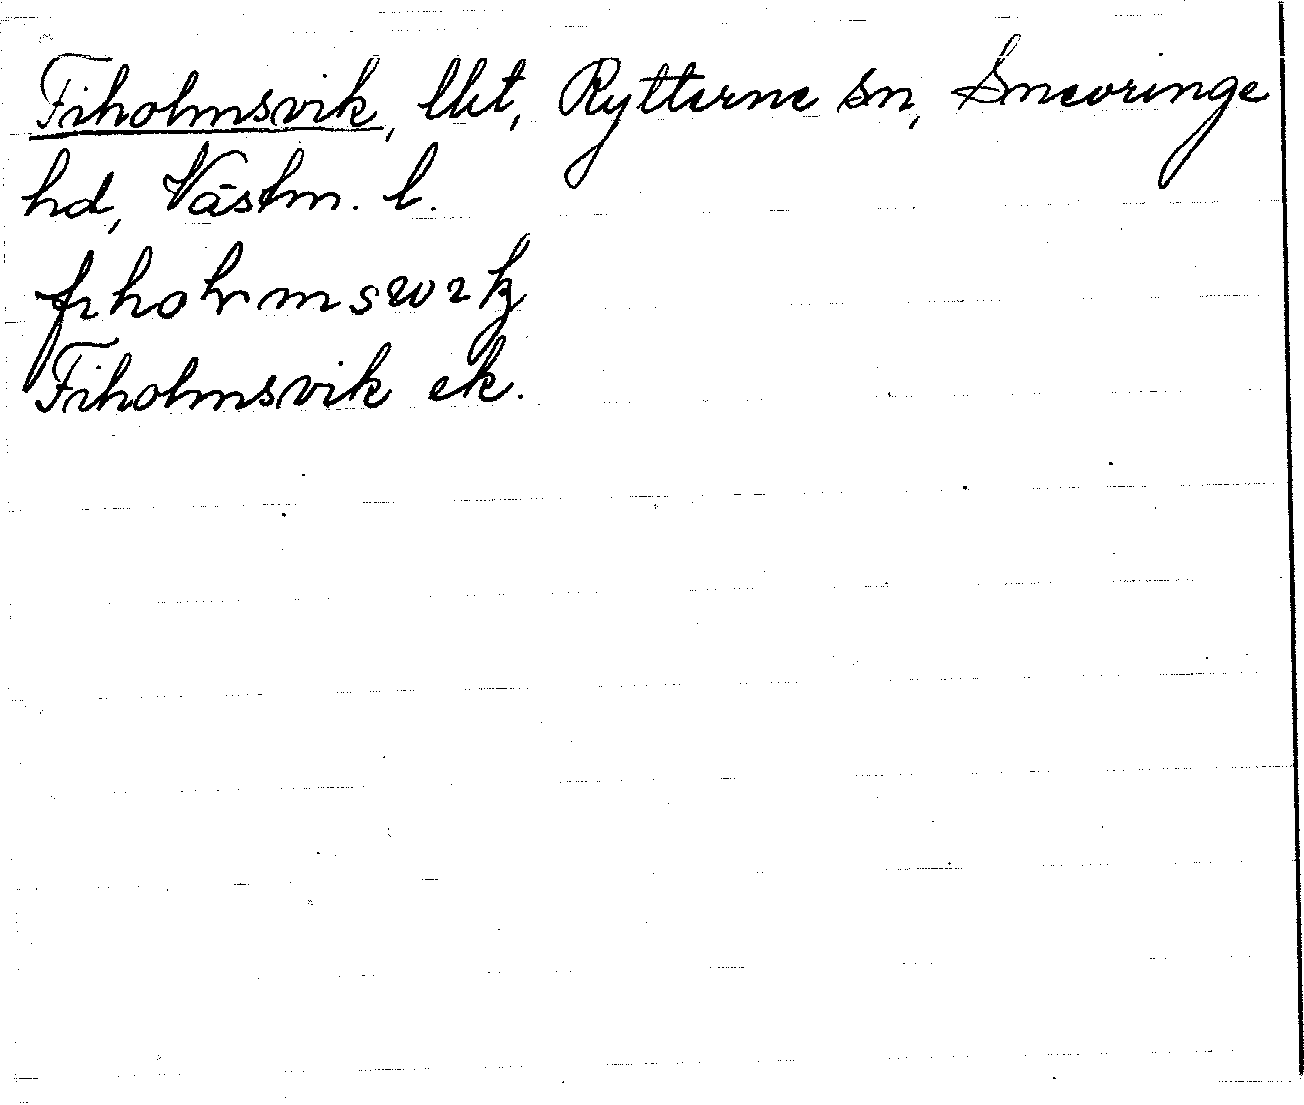 Fiholmsvik, lht, Rytterne sn, Snevringe
hd, Västm. l.
fiholmsvik
Fiholmsvik ek.